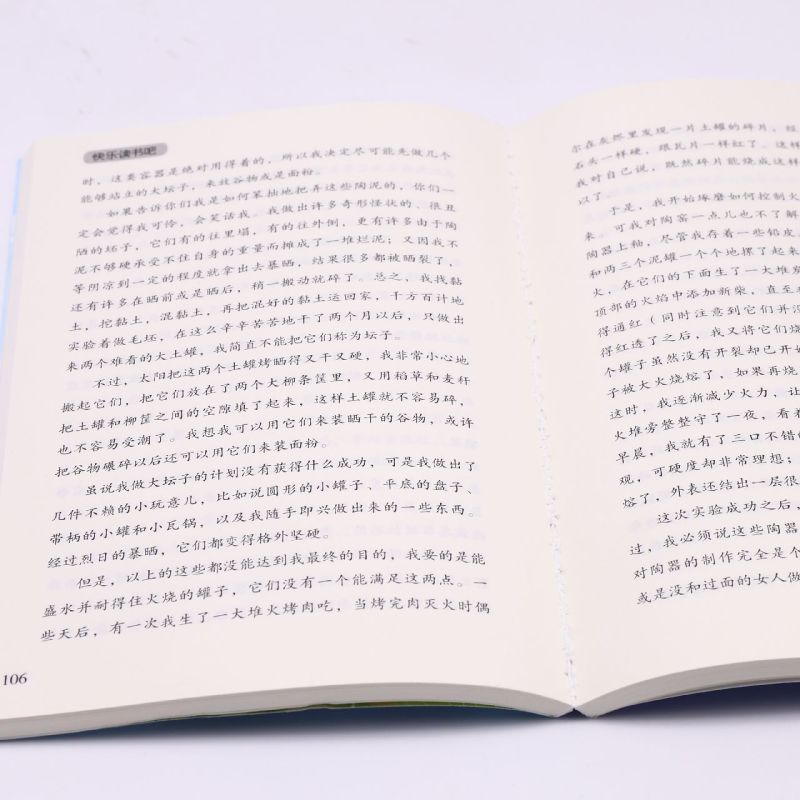 快乐读书吧
时，这类容器是绝对用得着的，所以我决定尽可能先做几个
能够站立的大坛子，来放谷物或是面粉。
如果告诉你们我是如何笨拙地把弄这些陶泥的，你们一
定会觉得我可怜，会笑话我。我做出许多奇形怪状的、很丑
陋的坯子，它们有的往里塌，有的往外倒，更有许多由于陶
泥不够硬承受不住自身的重量而摊成了一堆烂泥；又因我不
等阴凉到一定的程度就拿出去暴晒，结果很多都被晒裂了，
还有许多在晒前或是晒后，稍一搬动就碎了。总之，我找黏
土，挖黏土，混黏土，再把混好的黏土运回家，千方百计地
实验着做毛坯，在这么辛辛苦苦地干了两个月以后，只做出
来两个难看的大土罐，我简直不能把它们称为坛子。
不过，太阳把这两个土罐烤晒得又干又硬，我非常小心地
搬起它们，把它们放在了两个大柳条筐里，又用稻草和麦秆
把土罐和柳筐之间的空隙填了起来，这样土罐就不容易碎，
也不容易受潮了。我想我可以用它们来装晒干的谷物，或许
把谷物碾碎以后还可以用它们来装面粉。
虽说我做大坛子的计划没有获得什么成功，可是我做出了
几件不赖的小玩意儿，比如说圆形的小罐子、平底的盘子、
带柄的小罐和小瓦锅，以及我随手即兴做出来的一些东西。
经过烈日的暴晒，它们都变得格外坚硬。
但是，以上的这些都没能达到我最终的目的，我要的是能
盛水并耐得住火烧的罐子，它们没有一个能满足这两点。一
些天后，有一次我生了一大堆火烤肉吃，当烤完肉灭火时偶
106
尔在灰烬里发现一片土罐的碎片，经
石头一样硬，跟瓦片一样红了。这样
我对自己说，既然碎片能烧成这样
以了。
于是，我开始琢磨如何控制火
来。可我对陶窑一点儿也不了解
陶器上釉，尽管我存着一些铅皮
和两三个泥罐一个个地摞了起来
火，在它们的下面生了一大堆发
顶部的火焰中添加新柴，直至
得通红（同时注意到它们并没
得红透了之后，我又将它们烧
个罐子虽然没有开裂却已开始
子被大火烧熔了，如果再烧
这时，我逐渐减少火力，让
火堆旁整整守了一夜，看着
早晨，我就有了三口不错的
现，可硬度却非常理想；
熔了，外表还结出一层很
这次实验成功之后，
过，我必须说这些陶器
对陶器的制作完全是个
或是没和过面的女人做